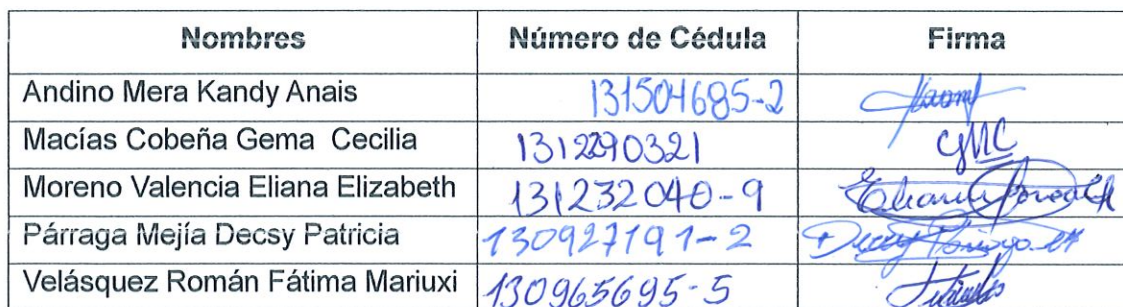 Nombres Número de Cédula Firma
Andino Mera Kandy Anais 131504685-2
Macías Cobeña Gema Cecilia 1312290321 GMC
Moreno Valencia Eliana Elizabeth 131232040-9
Párraga Mejía Decsy Patricia 130927191-2
Velásquez Román Fátima Mariuxi 130965695-5